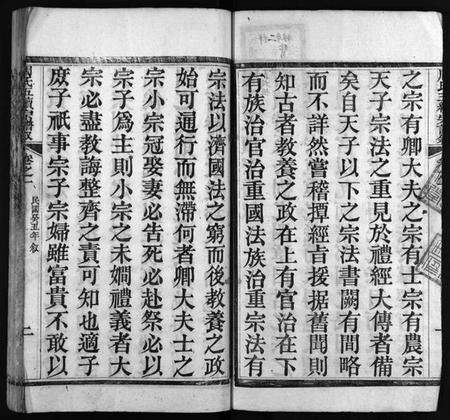 之宗有卿大夫之宗有士宗有農宗
天子宗法之重見於禮經大傳者備
矣自天子以下之宗法書闕有間略
而不詳然嘗稽撢經言援据舊聞則
知古者教養之政在上有官治在下
有族治官治重國法族治重宗法有
宗法以濟國法之窮而後教養之政
始可通行而無滯何者卿大夫士之
宗小宗冠娶妻必告死必赴祭必以
宗子為主則小宗之未嫺禮義者大
宗必盡教誨整齊之責可知也適子
庶子祇事宗子宗婦雖富貴不敢以
卷之一
民國癸丑年敘
二